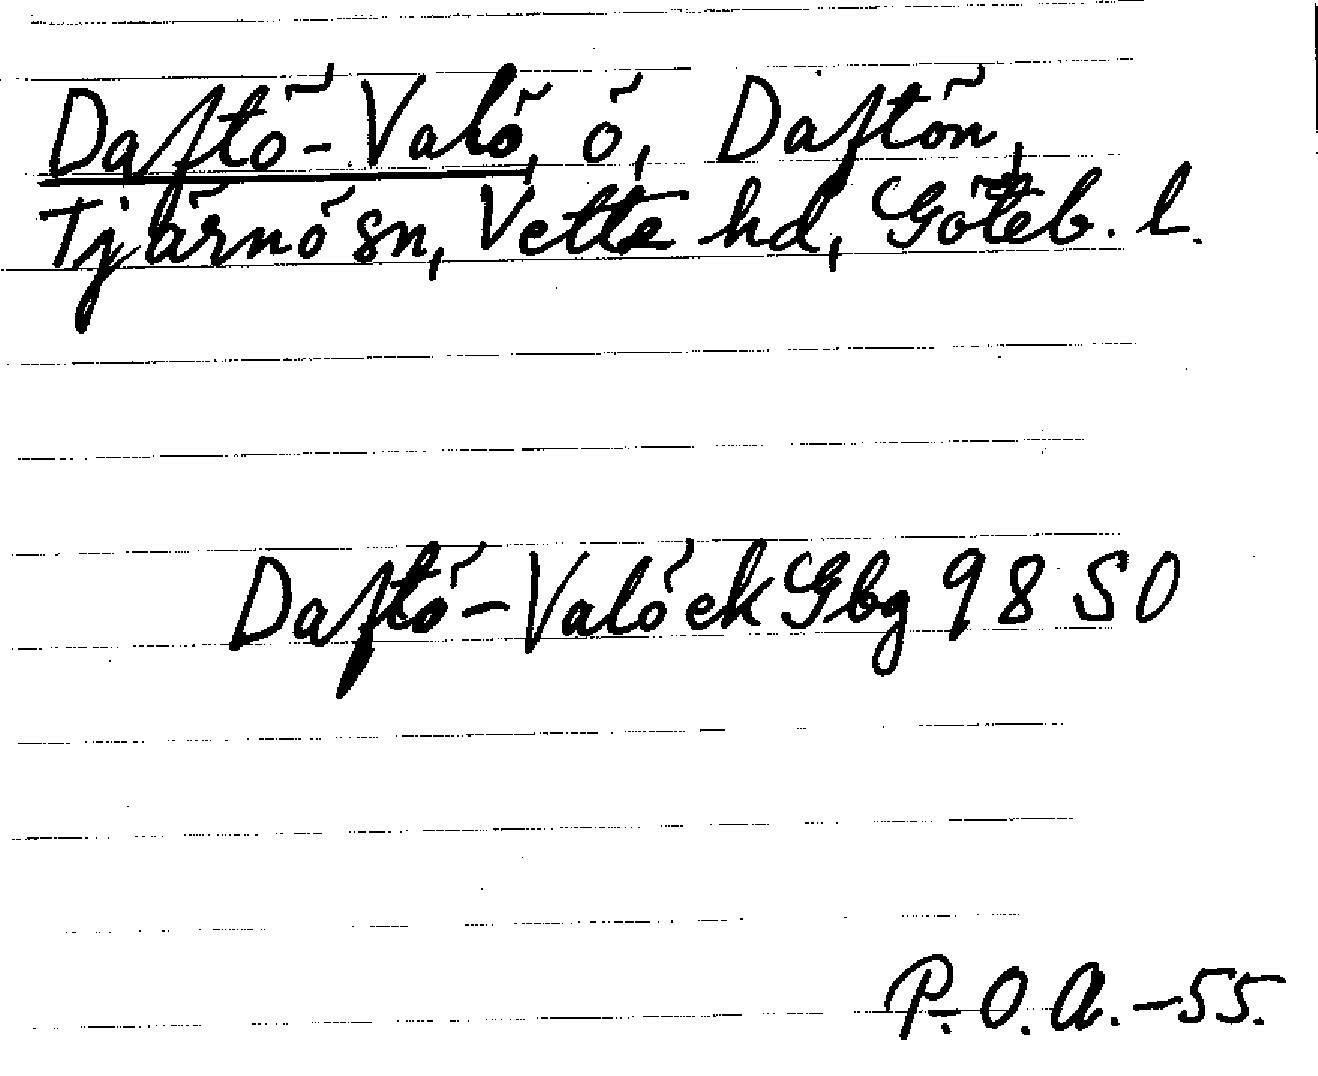 Daftö-Valö, ö, Daftön,
Tjärnö sn, Vette hd, Göteb. l.
Daftö-Valö ek Gbg 98 SO
P.O.A.-55.